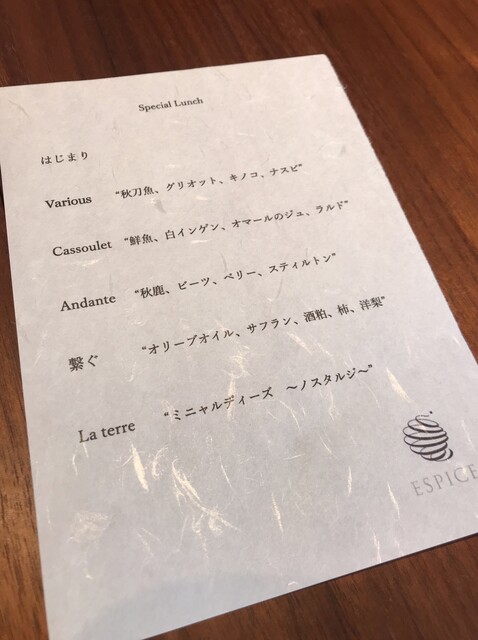 Special Lunch
はじまり
Various “秋刀魚、グリオット、キノコ、ナスビ”
Cassoulet “鮮魚、白インゲン、オマールのジュ、ラルド”
Andante “秋鹿、ビーツ、ベリー、スティルトン”
繋ぐ “オリーブオイル、サフラン、酒粕、柿、洋梨”
La terre “ミニャルディーズ ～ノスタルジ～”
ESPICE